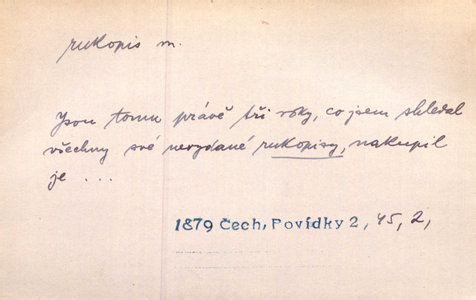 rukopis m.
Jsou tomu právě tři roky, co jsem shledal
všechny své nevydané rukopisy, nakupil
je ...
1879 Čech, Povídky 2, 45, 2,